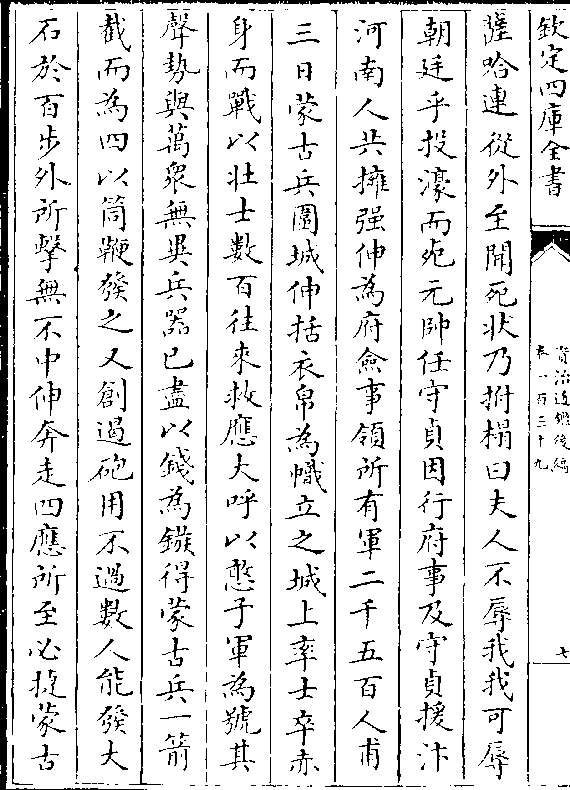 欽定四庫全書
資治通鑑後編
卷一百三十九
七
薩哈連從外至聞死狀乃拊榻曰夫人不辱我我可辱
朝廷乎投濠而死元帥任守貞因行府事及守貞援汴
河南人共擁强伸為府僉事領所有軍二千五百人甫
三日蒙古兵圍城伸括衣帛為幟立之城上率士卒赤
身而戰以壯士數百往來救應大呼以憨子軍為號其
聲勢與萬衆無異兵器已盡以錢為鏃得蒙古兵一箭
截而為四以筒鞭發之又創遏砲用不過數人能發大
石於百步外所擊無不中伸奔走四應所至必捷蒙古